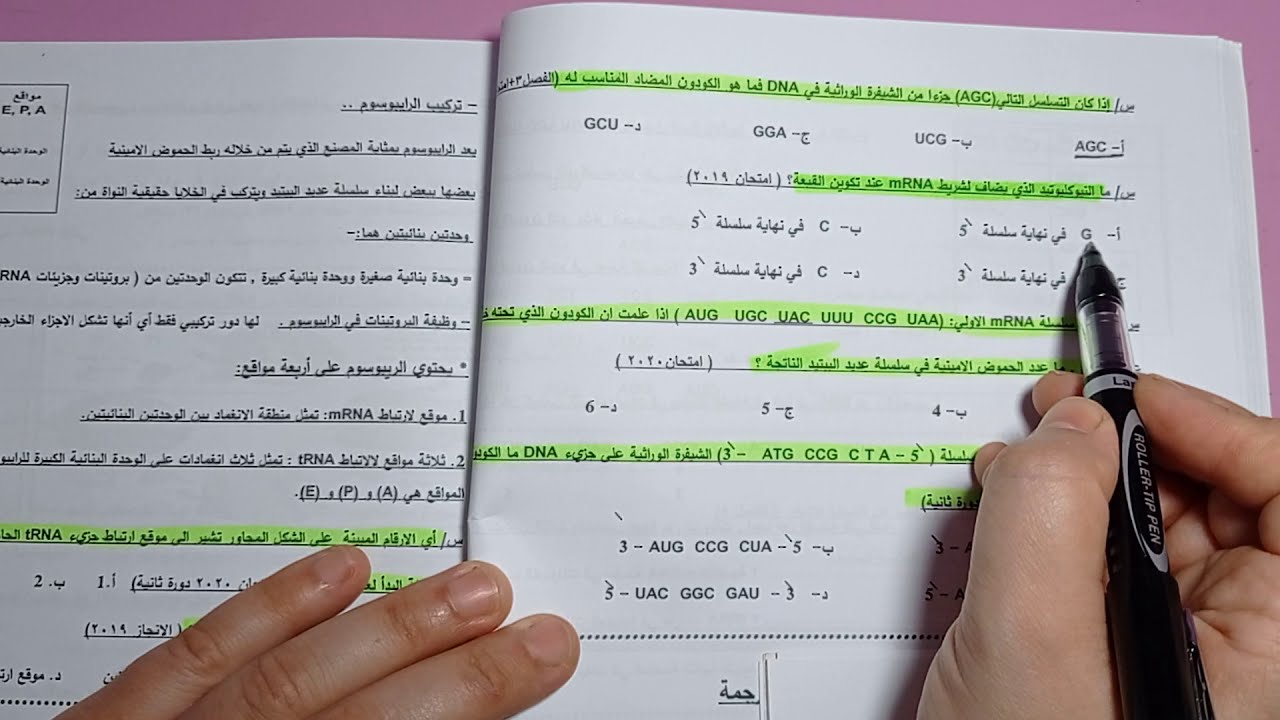 س/ إذا كان التسلسل التالي(AGC) جزءا من الشيفرة الوراثية في DNA فما هو الكودون المضاد المناسب له (الفصل٣+
أ- AGC ب- UCG ج- GGA د- GCU
س/ ما النيوكليوتيد الذي يضاف لشريط mRNA عند تكوين القبعة؟ ( امتحان ٢٠١٩)
أ- G في نهاية سلسلة 5\ ب- C في نهاية سلسلة 5\
ج في نهاية سلسلة 3\ د- C في نهاية سلسلة 3\
سلسلة mRNA الاولي: (AUG UGC UAC UUU CCG UAA ) اذا علمت ان الكودون الذي تحته
ما عدد الحموض الامينية في سلسلة عديد الببتيد الناتجة ؟ ( امتحان٢٠٢٠ )
ب- 4 ج- 5 د- 6
سلسلة ( 3\- ATG CCG C T A - 5\) الشيفرة الوراثية على جزيء DNA ما
دورة ثانية)
3\ - A ب- 3\ - AUG CCG CUA - 5\
5\ - A د- 5\ - UAC GGC GAU - 3\
جمة
– تركيب الرايبوسوم ..
يعد الرايبوسوم بمثابة المصنع الذي يتم من خلاله ربط الحموض الامينية
بعضها ببعض لبناء سلسلة عديد الببتيد ويتركب في الخلايا حقيقية النواة من:
وحدتين بنائيتين هما:-
= وحدة بنائية صغيرة ووحدة بنائية كبيرة , تتكون الوحدتين من ( بروتينات وجزيئات RNA
– وظيفة البروتينات في الرايبوسوم . لها دور تركيبي فقط أي أنها تشكل الاجزاء
* يحتوي الريبوسوم على أربعة مواقع:
1. موقع لارتباط mRNA: تمثل منطقة الانغماد بين الوحدتين البنائيتين.
2. ثلاثة مواقع لالاتباط tRNA : تمثل ثلاث انغمادات على الوحدة البنائية الكبيرة
المواقع هي (A) و (P) و (E).
س/ أي الارقام المبينة على الشكل المجاور تشير الى موقع ارتباط جزيء tRNA
البدأ ٢٠٢٠ دورة ثانية) أ.1 ب. 2
( الانجاز ٢٠١٩)
د. موقع
مواقع
E, P, A
الوحدة البنائية
الوحدة البنائية
ROLLER-TIP PEN